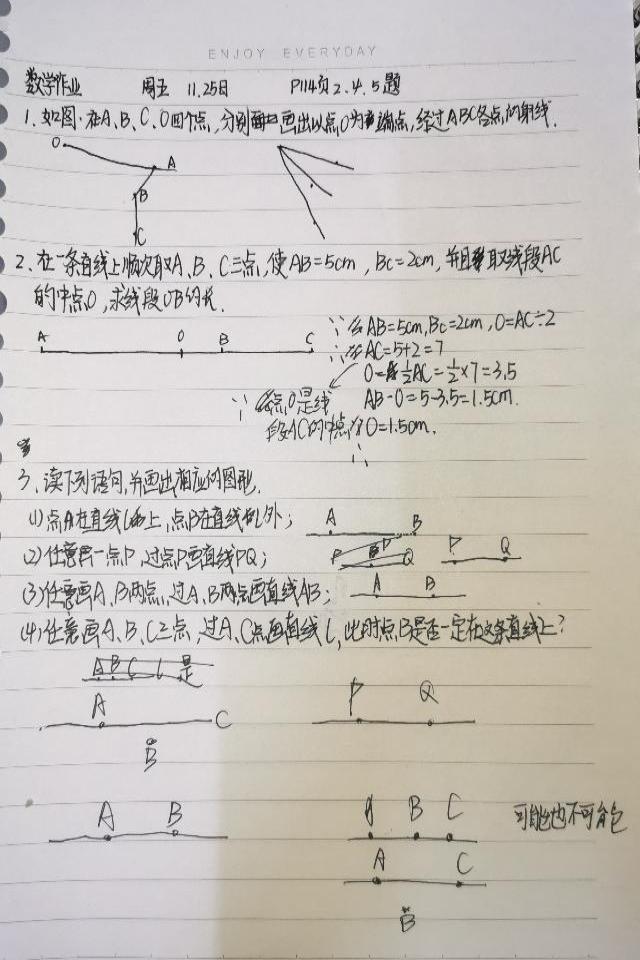 ENJOY EVERYDAY
数学作业 周五 11.25日 P114页2.4.5题
1.如图.在A、B、C、O四个点,分别画出以点O为端点,经过ABC各点的射线.
O
A
B
C
2、在一条直线上顺次取A、B、C三点,使AB=5cm,BC=2cm,并且取线段AC
的中点O,求线段OB的长.
A O B C
∵ AB=5cm,Bc=2cm,O=AC÷2
∴ AC=5+2=7
O=½AC=½×7=3.5
∵ 点O是线 AB-O=5-3.5=1.5cm.
段AC的中点 O=1.5cm.
∴
3、读下列语句,并画出相应的图形.
(1)点A在直线l上,点B在直线外; A B
(2)任意画一点P,过点P画直线PQ; P Q P Q
(3)任意画A、B两点,过A、B两点画直线AB; A B
(4)任意画A、B、C三点,过A、C点画直线l,此时点B是否一定在这条直线上?
A B C l 是
A C
B
P Q
A B
B C 可能也不可能
A C
B